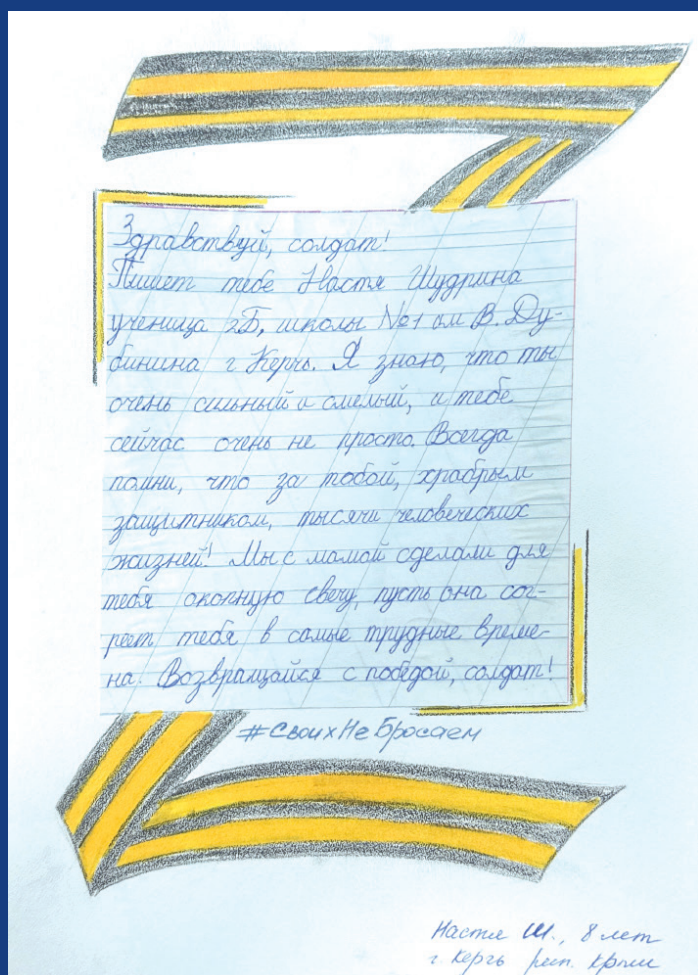 Здравствуй, солдат!
Пишет тебе Настя Шудрина
ученица 2Б, школы №1 им В. Ду-
бинина г Керчь. Я знаю, что ты
очень сильный и смелый, и тебе
сейчас очень не просто. Всегда
помни, что за тобой, храбрым
защитником, тысячи человеческих
жизней! Мы с мамой сделали для
тебя окопную свечу, пусть она сог-
реет тебя в самые трудные време-
на! Возвращайся с победой, солдат!
#СвоихНеБросаем
Настя Ш., 8 лет
г Керчь респ. Крым